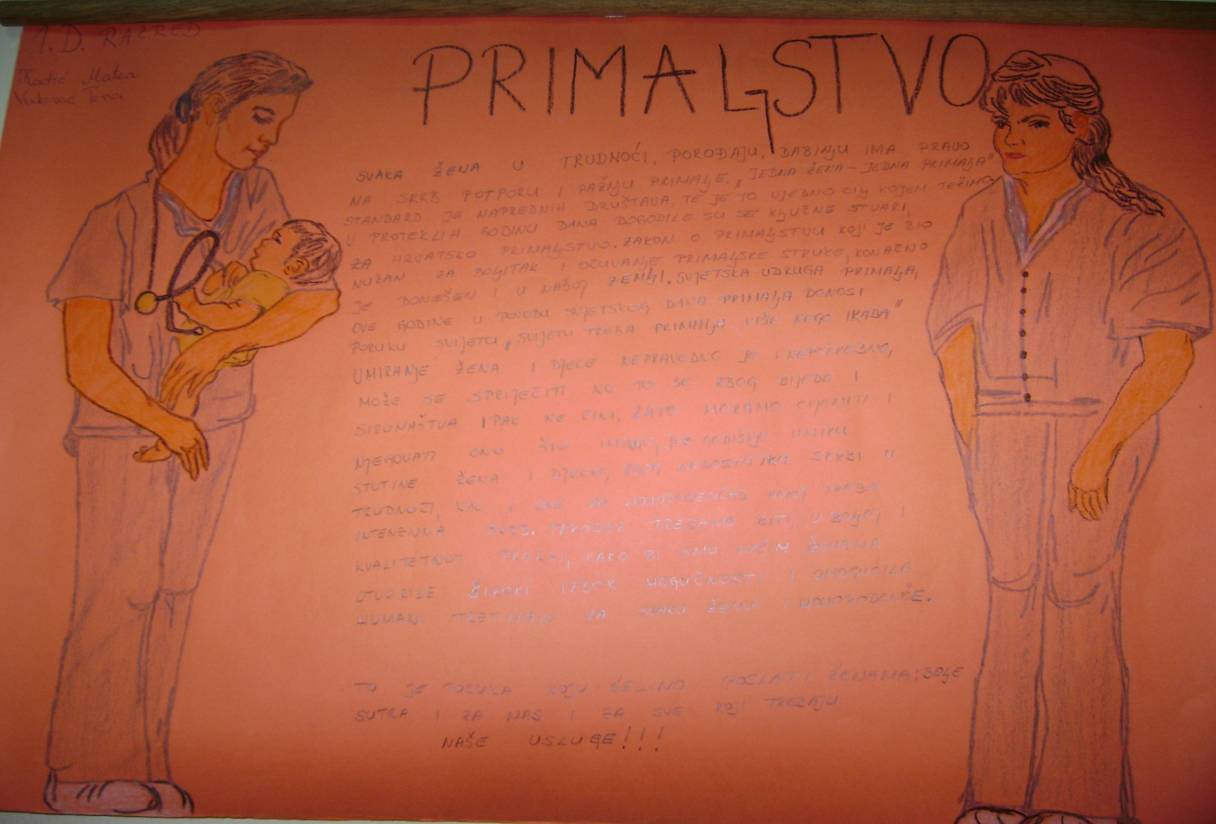 1. D. RAZRED
PRIMALJSTVO
SVAKA ŽENA U TRUDNOĆI, POROĐAJU, BABINJU IMA PRAVO
NA SKRB POTPORU I PAŽNJU PRIMALJE. „JEDNA ŽENA - JEDNA PRIMALJA"
STANDARD JE NAPREDNIH DRUŠTAVA, TE JE TO UJEDNO CILJ KOJEM TEŽIMO.
U PROTEKLIH GODINU DANA DOGODILE SU SE KLJUČNE STVARI,
ZA HRVATSKO PRIMALJSTVO. ZAKON O PRIMALJSTVU KOJI JE BIO
NUŽAN ZA BOLJITAK I OČUVANJE PRIMALJSKE STRUKE, KONAČNO
JE DONEŠEN I U NAŠOJ ZEMLJI. SVJETSKA UDRUGA PRIMALJA,
OVE GODINE U POVODU SVJETSKOG DANA PRIMALJA DONOSI
PORUKU SVIJETU „SVIJETU TREBA PRIMALJA VIŠE NEGO IKADA"
UMIRANJE ŽENA I DJECE NEPRAVEDNO JE I
MOŽE SE SPRIJEČITI NO TO SE ZBOG BIJEDE I
SIROMAŠTVA IPAK NE ČINI, ZATO MORAMO CIJENITI I
NJEGOVATI ONO ŠTO IMAMO,
STOTINE ŽENA I DJECE, SKRBI U
TRUDNOĆI, KAO I SVE
INTENZIVNA SKRB. TREBAMO BITI U BOLJOJ I
KVALITETNOJ KAKO BI SMO NAŠIM ŽENAMA
OTVORILE ŠIROKI IZBOR MOGUĆNOSTI I OMOGUĆILE
HUMANI ZA SVAKU ŽENU I NOVOROĐENČE.
TO JE PORUKA KOJU ŽELIMO POSLATI ŽENAMA; BOLJE
SUTRA I ZA NAS I ZA SVE KOJI TREBAJU
NAŠE USLUGE!!!